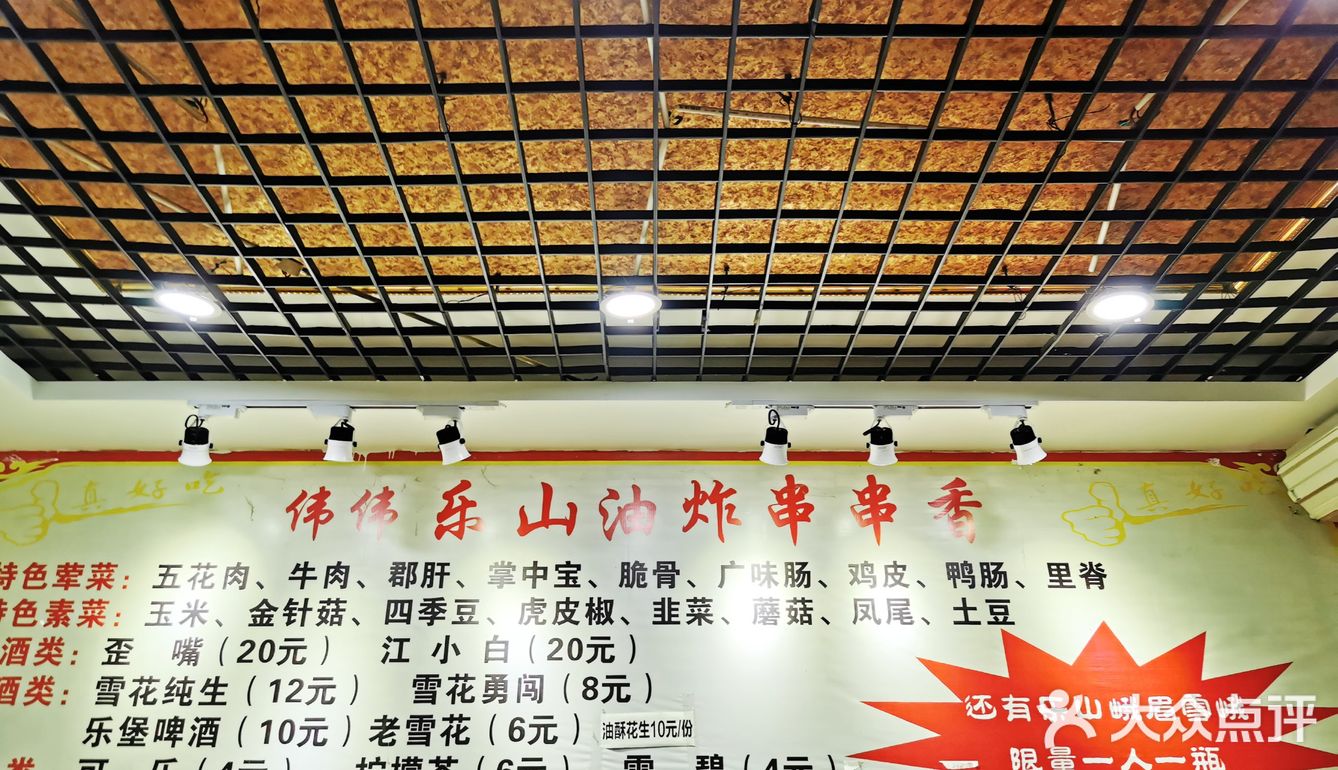 真好吃
伟伟乐山油炸串串香
真好
特色荤菜：五花肉、牛肉、郡肝、掌中宝、脆骨、广味肠、鸡皮、鸭肠、里脊
特色素菜：玉米、金针菇、四季豆、虎皮椒、韭菜、蘑菇、凤尾、土豆
酒类：歪嘴（20元） 江小白（20元）
酒类：雪花纯生（12元） 雪花勇闯（8元）
乐堡啤酒（10元）老雪花（6元）
油酥花生10元/份
类 可乐（4元） 柠檬茶（6元） 雪碧（4元）
还有乐山峨眉雪
限量一人一瓶
大众点评